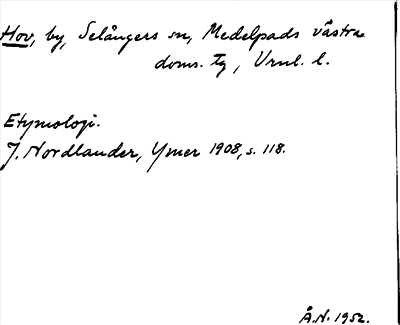 Hov, by, Selångers sn, Medelpads västra
doms. tg, Vrnl. l.
Etymologi.
J. Nordlander, Ymer 1908, s. 118.
Å.N. 1952.